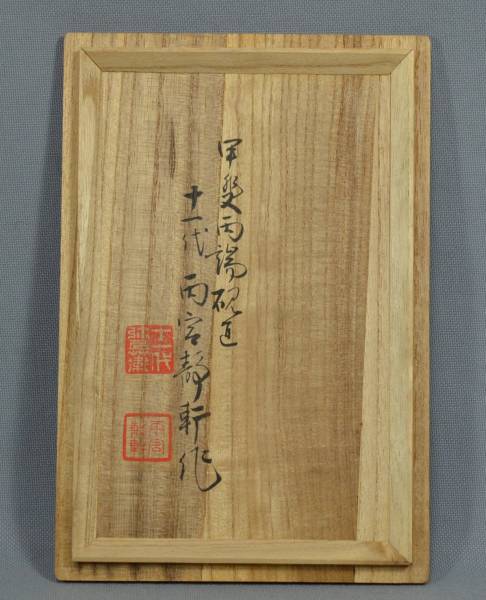 甲斐雨端硯匠
十一代 雨宮静軒作
雨宮
靜軒